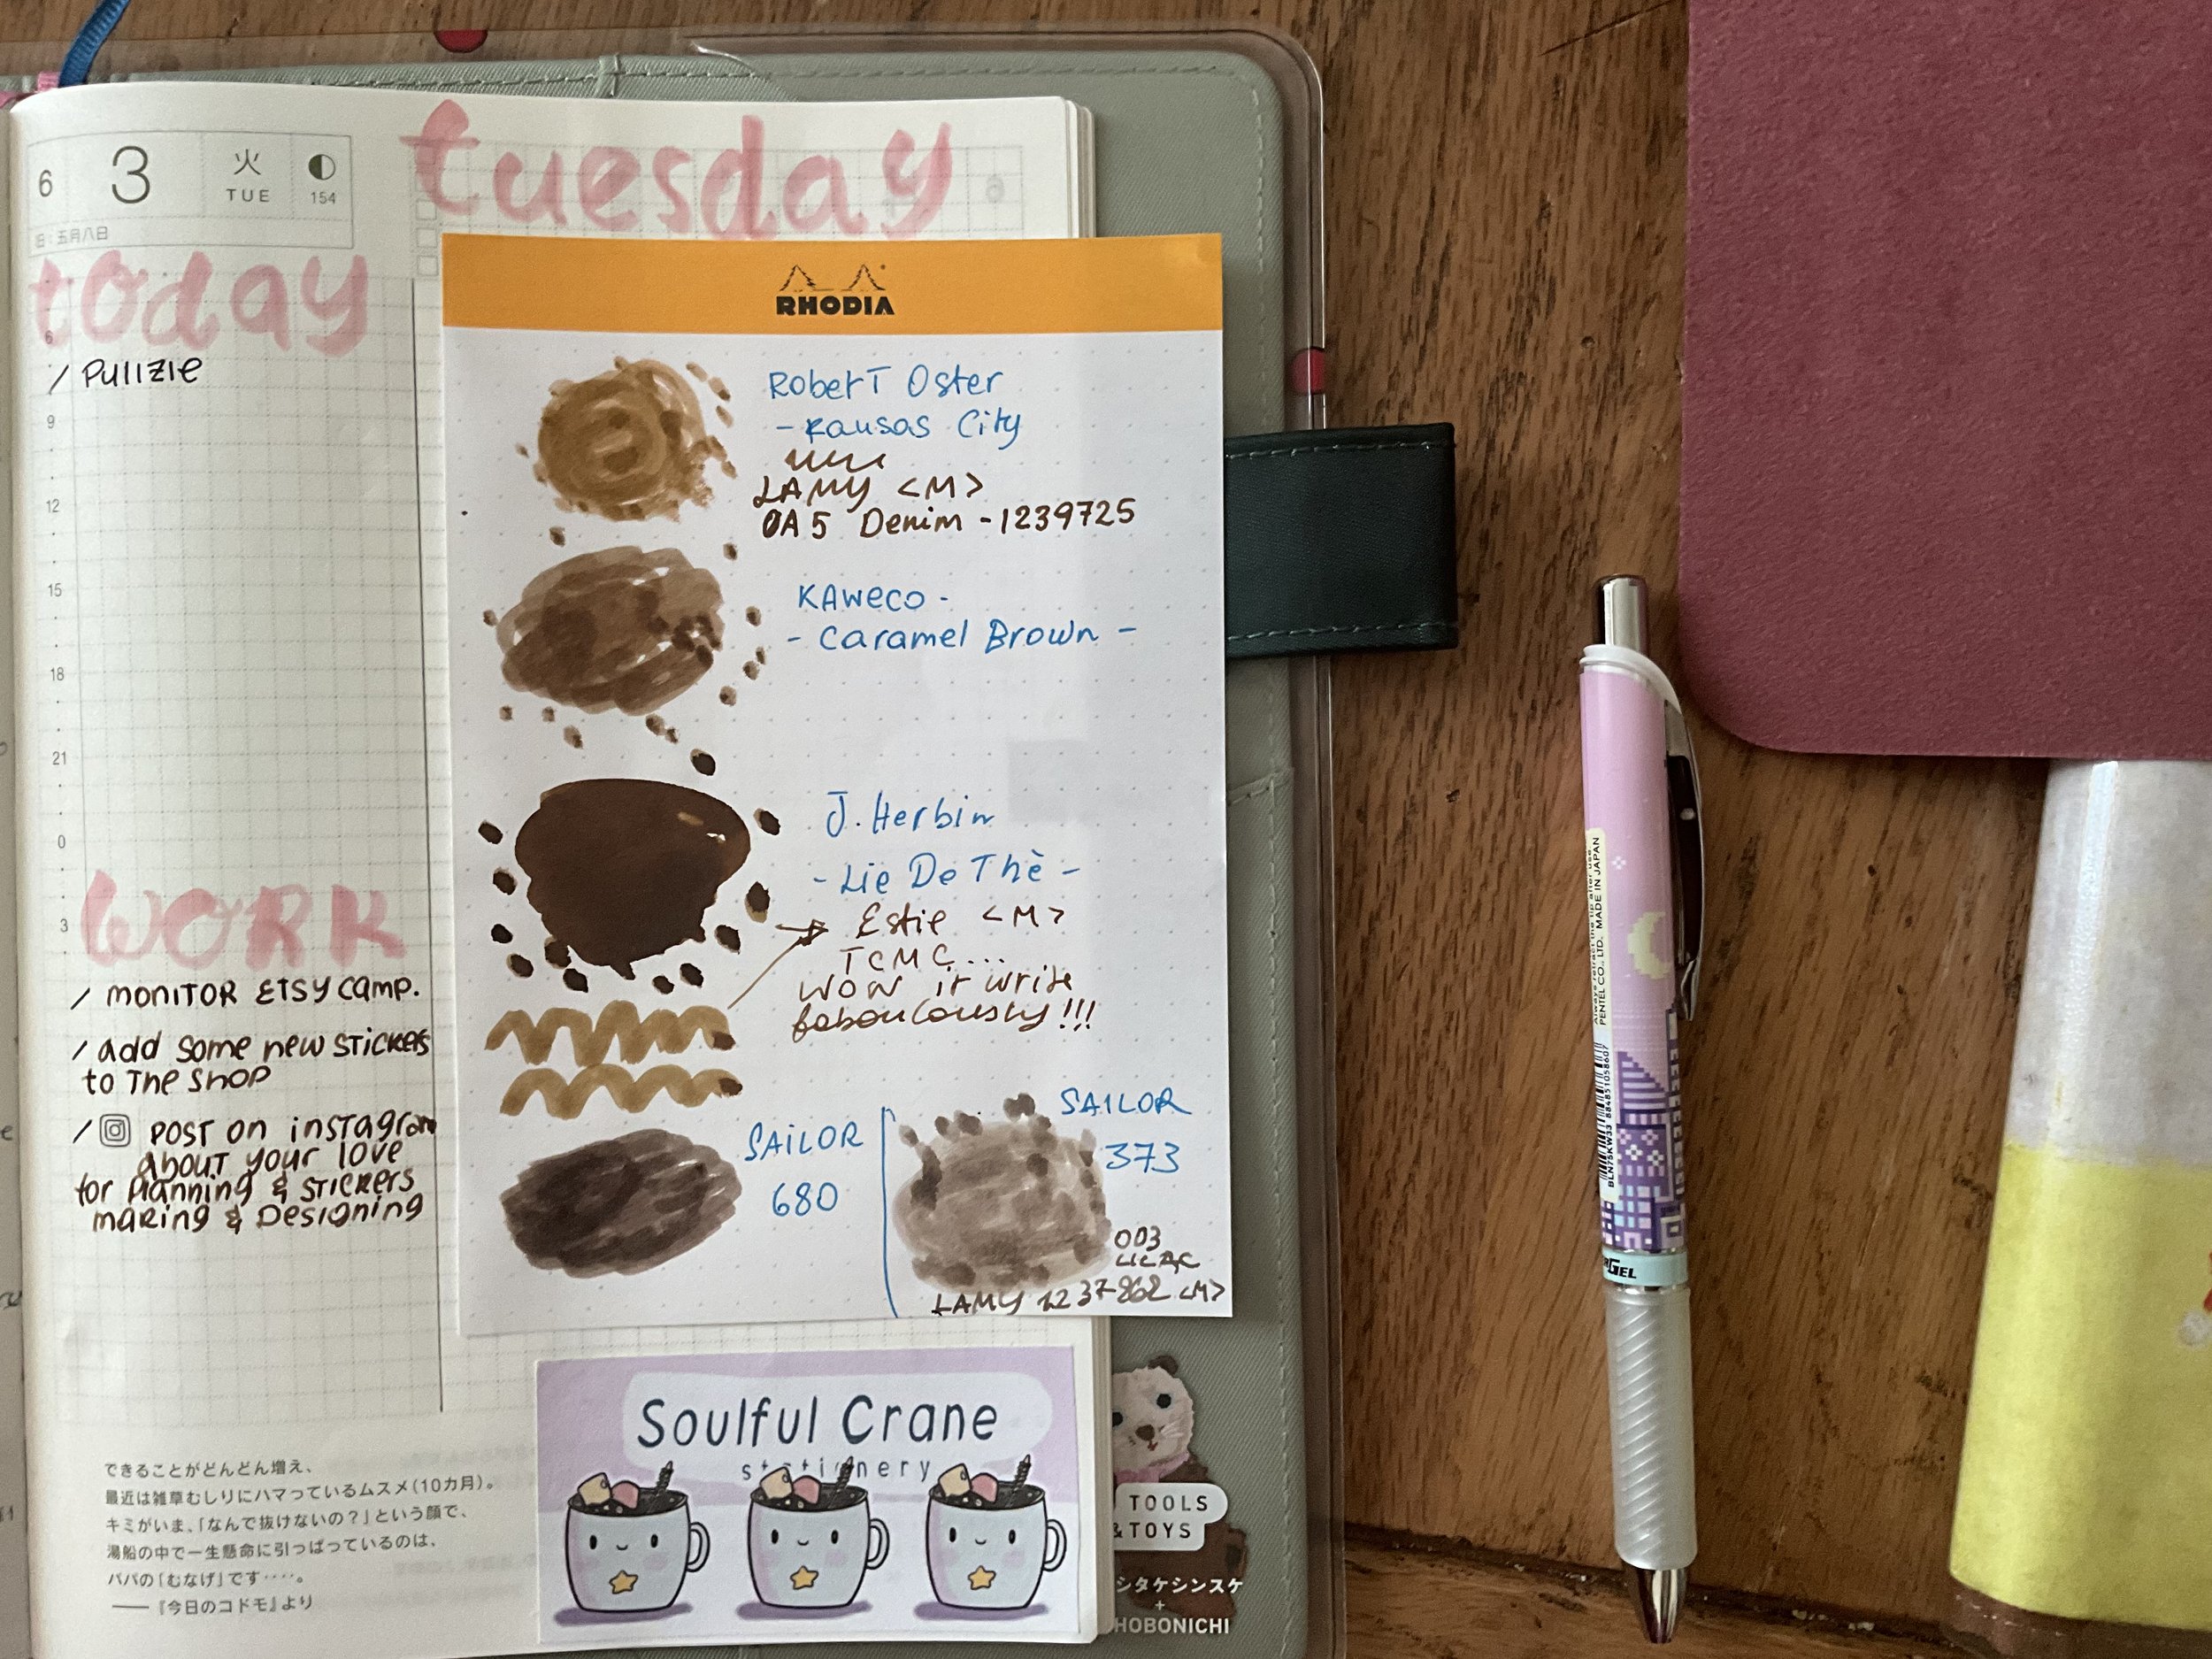 6 3 火 TUE 154
旧:五月八日
tuesday
today
/ Pullzie
6
9
12
15
18
21
0
3
WORK
/ MONITOR ETSY CAMP.
/ add some new stickers
to The SHOP
/ POST ON instagram
about your love
for planning & stickers
making & Designing
できることがどんどん増え、
最近は雑草むしりにハマっているムスメ(10カ月)。
キミがいま、「なんで抜けないの?」という顔で、
湯船の中で一生懸命に引っぱっているのは、
パパの「むなげ」です‥‥。
——『今日のコドモ』より
RHODIA
Robert Oster
- Kansas City
LAMY <M>
0A5 Denim - 1239725
KAWECO -
- Caramel Brown -
J. Herbin
- Lie De Thè -
Estie <M>
TCMC...
WOW it write
faboulously!!!
SAILOR
680
SAILOR
373
003
LILAC
LAMY 1237862 <M>
Soulful Crane
stationery
TOOLS
& TOYS
シタケシンスケ
+
HOBONICHI
Always retract the tip after use
PENTEL CO., LTD. MADE IN JAPAN
BLN75KW33
GEL